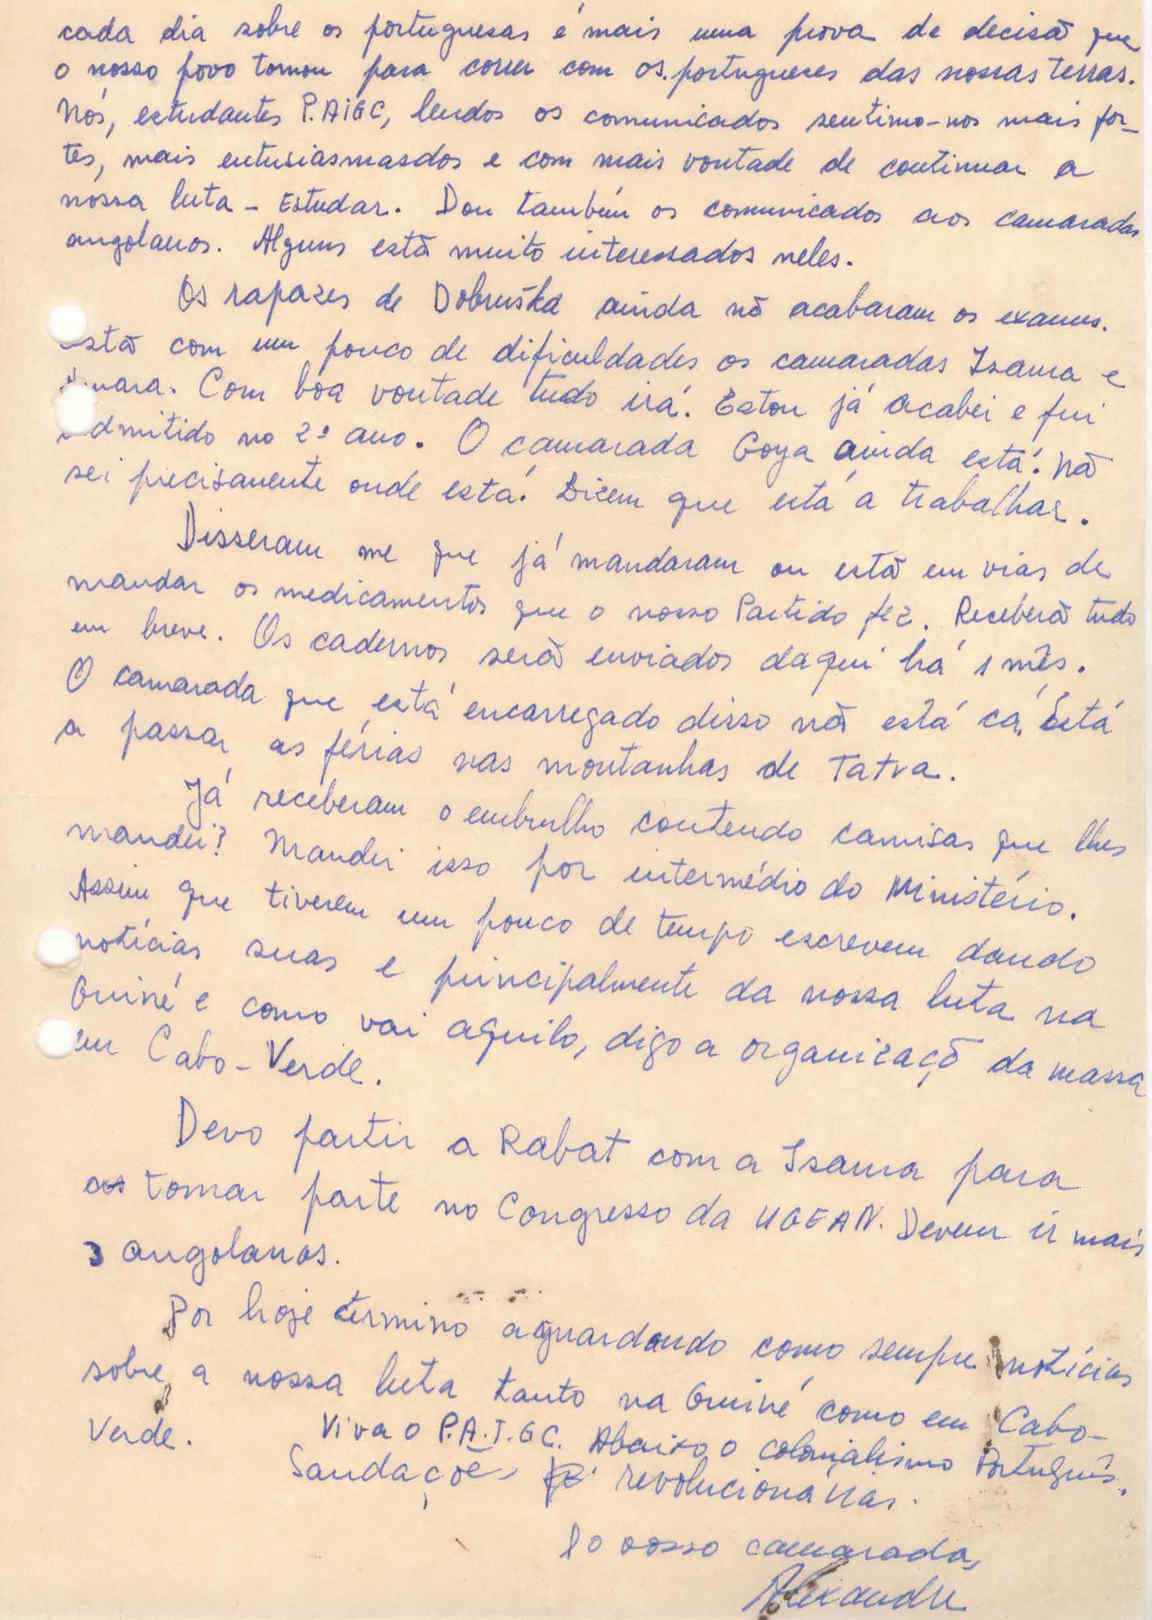 cada dia sobre os portuguesas é mais uma prova de decisã que
o nosso povo tomou para correr com os portugueses das nossas terras.
Nós, estudantes P.AiGC, lendos os comunicados sentimo-nos mais for-
tes, mais entusiasmasdos e com mais vontade de continuar a
nossa luta - Estudar. Dou também os comunicados aos camaradas
angolanos. Alguns estã muito interessados neles.
Os rapazes de Dobruška ainda nã acabaram os exames.
Estã com um pouco de dificuldades os camaradas Isaura e
Com bôa vontade tudo irá. Estou já acabei e fui
admitido no 2º ano. O camarada Goya ainda está. Nã
sei precisamente onde está. Dizem que está a trabalhar.
Disseram me que já mandaram ou estã em vias de
mandar os medicamentos que o nosso Partido fez. Receberã tudo
em breve. Os cadernos serã enviados daqui há 1 mês.
O camarada que está encarregado disso nã está cá. Está
a passar as férias nas montanhas de Tatra.
Já receberam o embrulho contendo camisas que lhes
mandei? Mandei isso por intermédio do Ministério.
Assim que tiverem um pouco de tempo escrevem dando
notícias suas e principalmente da nossa luta na
Guiné e como vai aquilo, digo a organizaçõ da massa
em Cabo-Verde.
Devo partir a Rabat com a Isaura para
tomar parte no Congresso da UGEAN. Devem ir mais
3 angolanos.
Por hoje termino aguardando como sempre notícias
sobre a nossa luta tanto na Guiné como em Cabo-
Verde. Viva o P.A.I.GC. Abaixo o colonialismo Português.
Saudações revolucionárias.
Do vosso camarada,
Alexandre